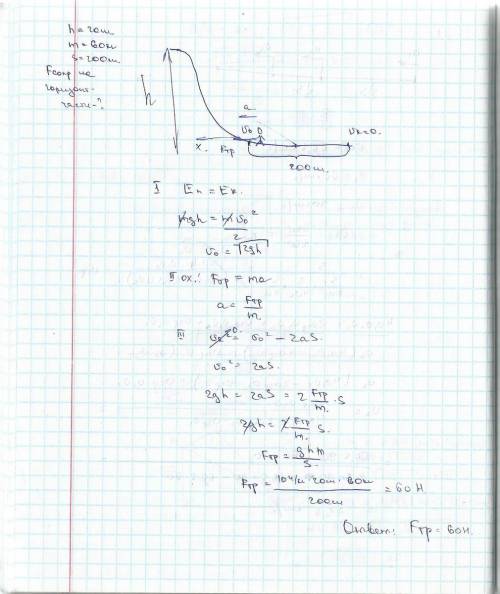 h = 20м
m = 60кг
s = 200м.
Fсопр на
горизонт.
части - ?
h
a
v₀
x.
Fтр
vк=0.
200м.
I Eп = Eк.
mgh = mv₀²/2
v₀ = √2gh
II ox: Fтр = ma
a = Fтр/m.
III vк² = v₀² - 2aS. 0
v₀² = 2aS.
2gh = 2aS = 2 Fтр/m. · S
2gh = 2 Fтр/m. S.
Fтр = ghm/S.
Fтр = 10 Н/кг · 20м · 60кг / 200м = 60 Н
Ответ: Fтр = 60Н.